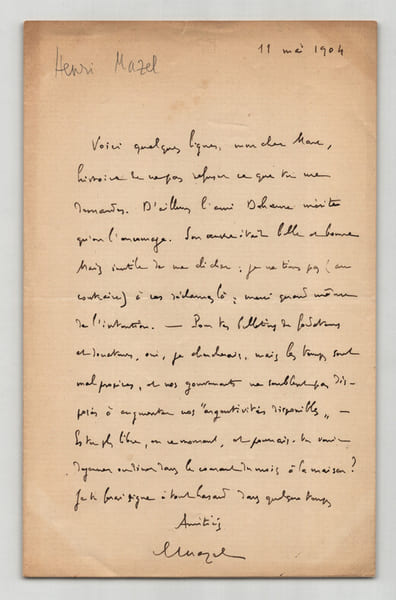 Henri Mazel
11 mai 1904
Voici quelques lignes, mon cher Marc,
histoire de ne pas refuser ce que tu me
demandes. D'ailleurs l'ami mérite
qu'on l'encourage. Son œuvre était belle et bonne
Mais inutile de me ; je ne tiens pas (au
contraire) à ces réclames là ; merci quand même
de l'intention. — Pour tes bulletins de
et donateurs, oui, je chercherais, mais les temps sont
mal propices, et nos gouvernants ne semblent pas dis-
posés à augmenter nos "argentivités disponibles" —
Es-tu plus libre, en ce moment, et pourrais-tu venir
déjeuner ou dîner dans le courant du mois à la maison ?
Je te ferai signe à tout hasard dans quelque temps
Amitiés
HMazel